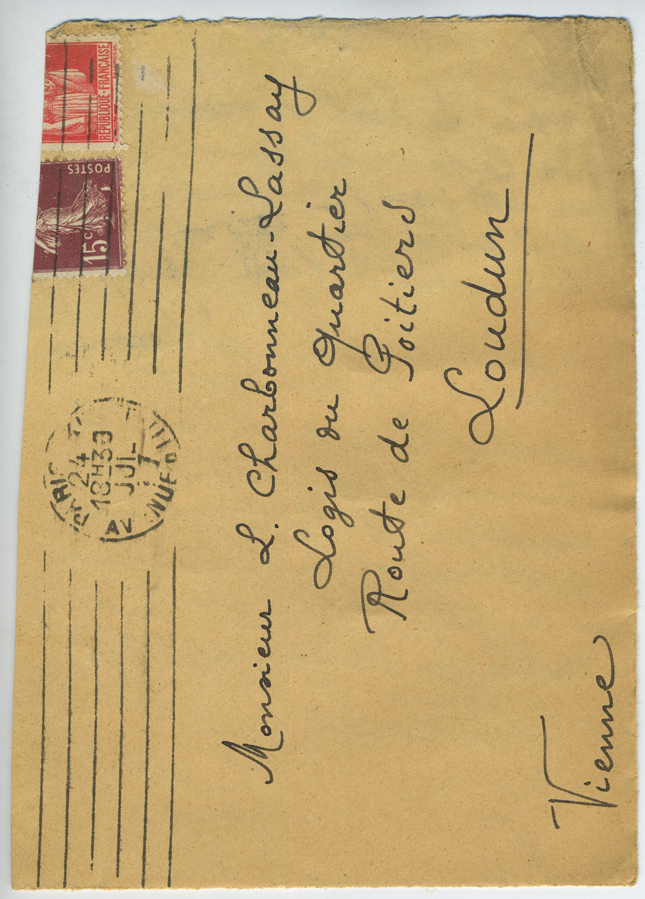 REPUBLIQUE-FRANÇAISE
POSTES
15c
PARIS
24
18H30
JUIL
AV
Monsieur L. Charbonneau-Lassay
Logis du Quartier
Route de Poitiers
Loudun
Vienne